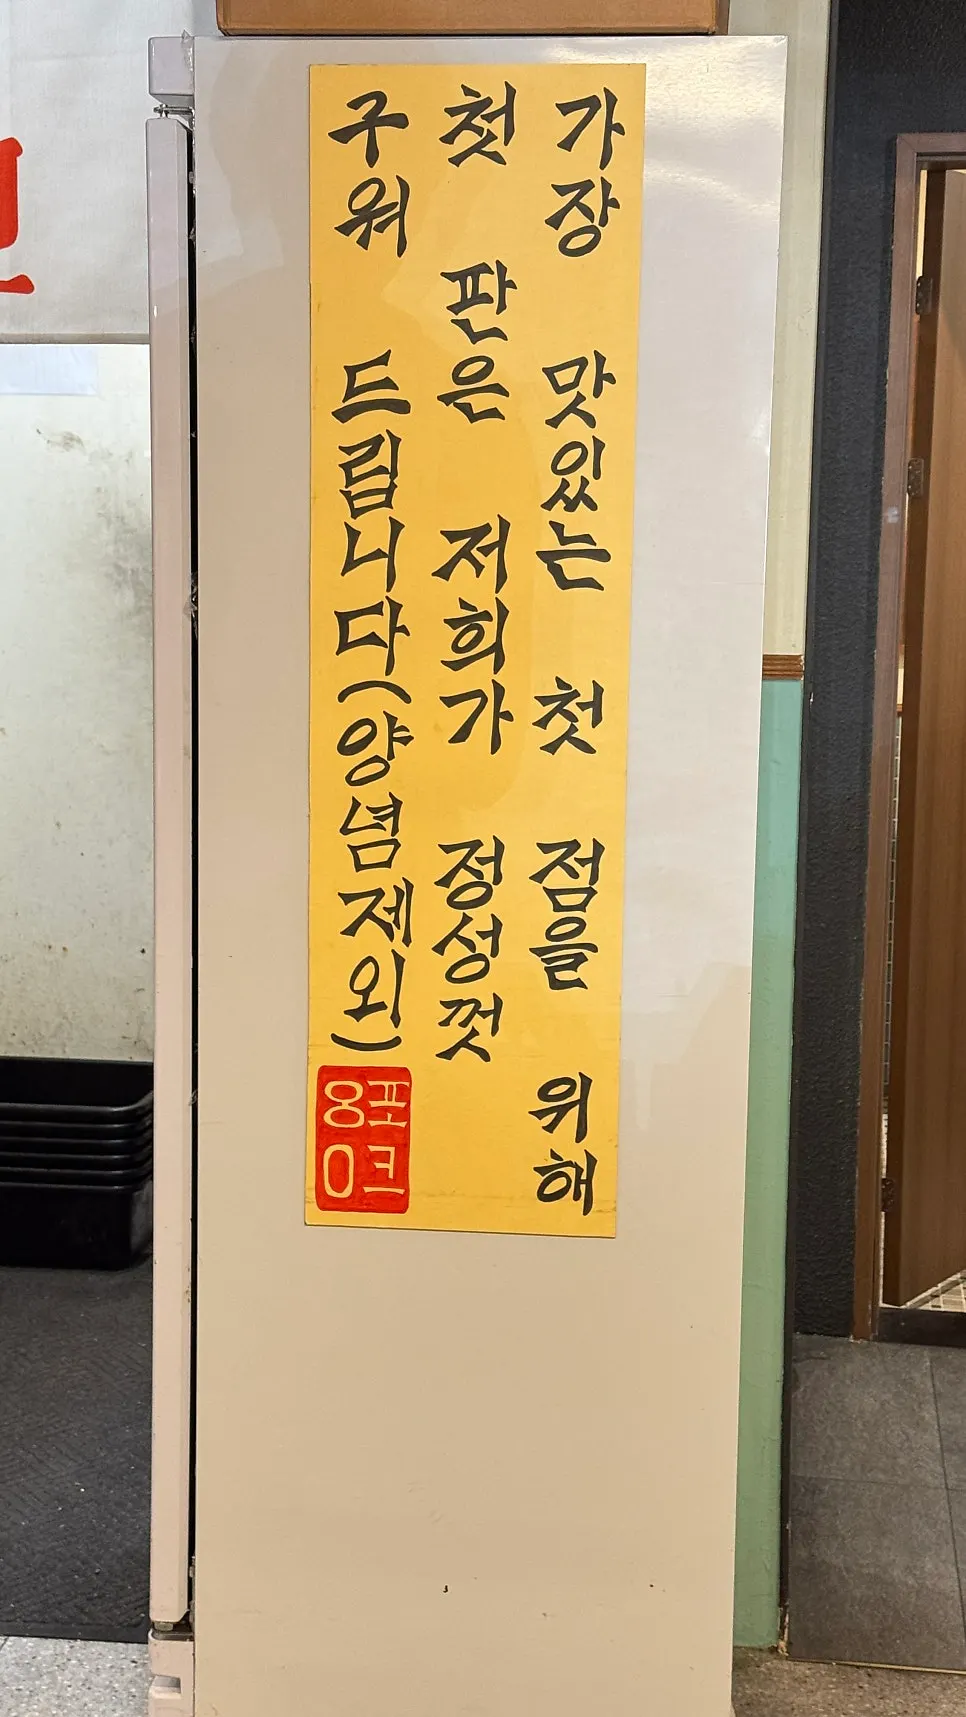 가장 맛있는 첫 점을 위해
첫 판은 저희가 정성껏
구워 드립니다(양념제외)
포크